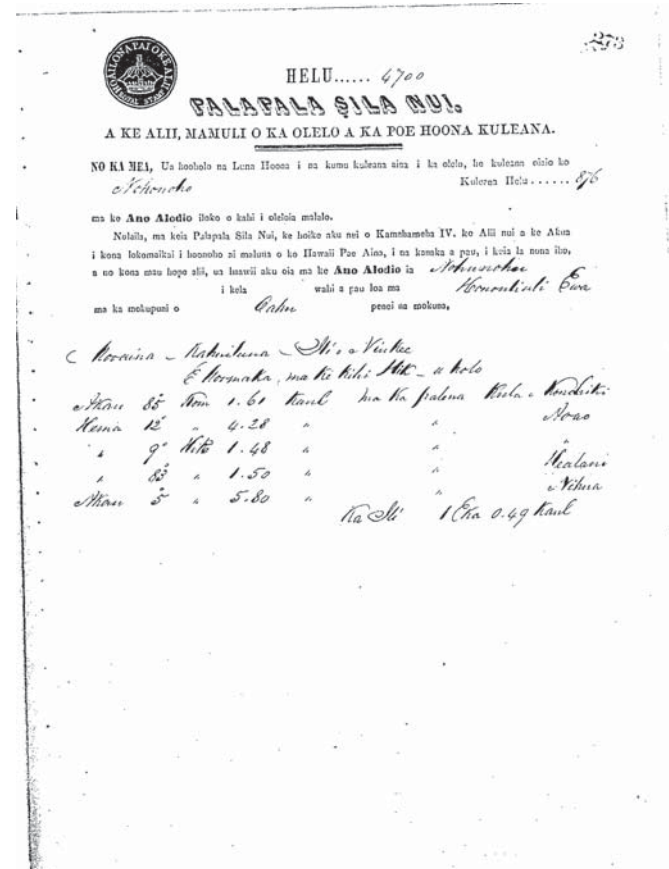 273
HELU...... 4700
PALAPALA SILA NUI.
A KE ALII, MAMULI O KA OLELO A KA POE HOONA KULEANA.
NO KA MEA, Ua hooholo na Luna Hoona i na kumu kuleana aina i ka olelo, he kuleana oiaio ko
Nohonoho Kuleana Helu...... 876
ma ke Ano Alodio iloko o kahi i oleloia malalo.
Nolaila, ma keia Palapala Sila Nui, ke hoike aku nei o Kamehameha IV. ke Alii nui a ke Akua
i kona lokomaikai i hoonoho ai maluna o ko Hawaii Pae Aina, i na kanaka a pau, i keia la nona iho,
a no kona mau hope alii, ua haawii aku oia ma ke Ano Alodio ia Nohunohu
i kela wahi a pau loa ma Honouliuli Ewa
ma ka mokupuni o Oahu penei na mokuna,
E Hoomaka, ma ke kihi Hik - a holo
Akau 85° Kom 1.61 Kaul ma ka palena Kula Konohiki
Hema 12° " 4.28 " "
" 9° Hik 1.48 " " "
" 83° " 1.50 " " Healani
Akau 5 " 5.80 " "
Ka Ili 1 Eka 0.49 Kaul